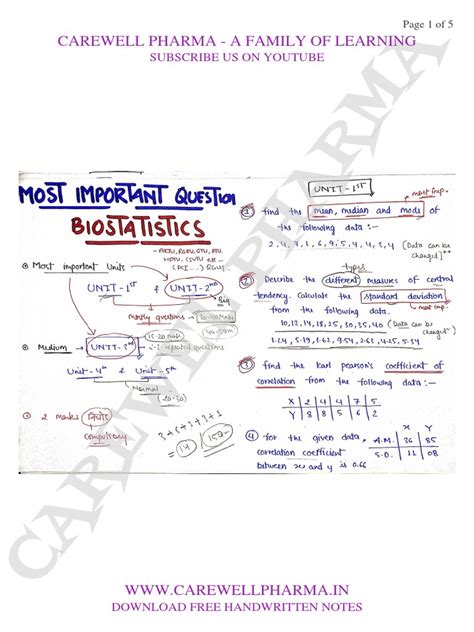 Page 1 of 5
CAREWELL PHARMA - A FAMILY OF LEARNING
SUBSCRIBE US ON YOUTUBE
CAREWELL PHARMA
MOST IMPORTANT QUESTION
BIOSTATISTICS
Most important Units
UNIT-1ST & UNIT-2nd
Big
mostly questions
Medium → UNIT-3rd
15-20 marks
2-3 repeated questions
Unit-4th & Unit-5th
Normal
2 marks
Compulsory
UNIT-1ST
most imp.
1 find the mean, median and mode of
the following data:-
2,4,7,1,6,9,5,4,4,3,4 [Data can be
changed]**
types
2 Describe the different measures of central
-tendency. Calculate the standard deviation
most imp.
from the following data.
10,12,14,18,25,30,35,40 [Data can be
changed]
1.24, 5.19, 1.62, 9.54, 2.63, 4.25, 5.34
3 find the karl pearson's coefficient of
correlation from the following data:-
X 2 4 4 7 5
Y 8 3 2
4 for the given data,
correlation coefficient
between x and y is 0.66
x y
A.M. 36 85
S.D. 11 08
WWW.CAREWELLPHARMA.IN
DOWNLOAD FREE HANDWRITTEN NOTES